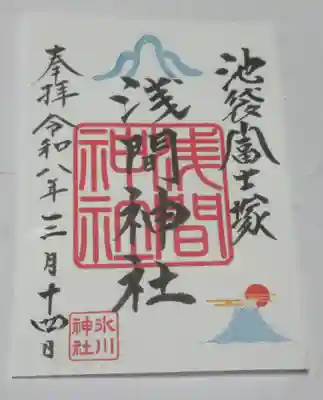 池袋富士塚
浅間神社
奉拝 令和八年三月十四日
浅間
神社
氷川
神社